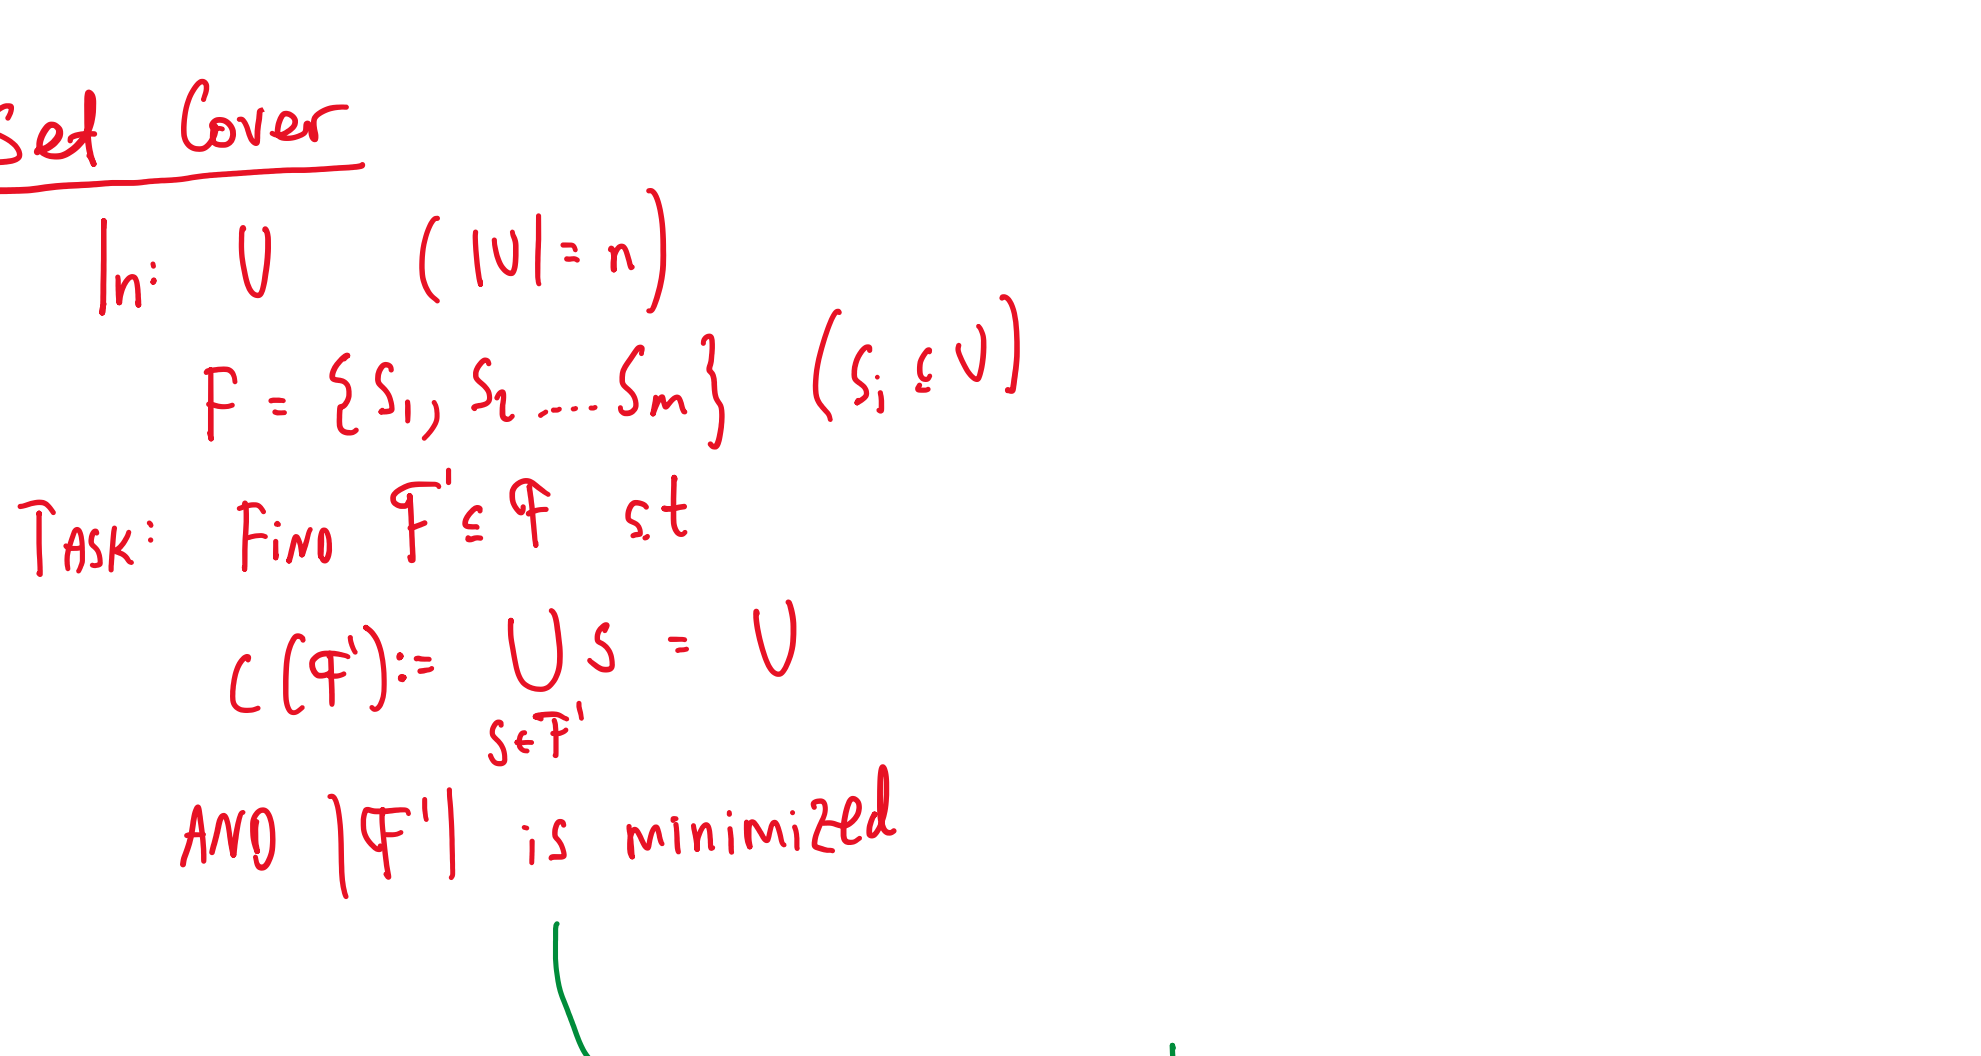 Set Cover
In: U (|U| = n)
F = {S₁, S₂ .... Sₘ} (Sᵢ ⊆ U)
TASK: FIND F' ⊆ F st
C(F') := ⋃ S = U
S∈F'
AND |F'| is minimized